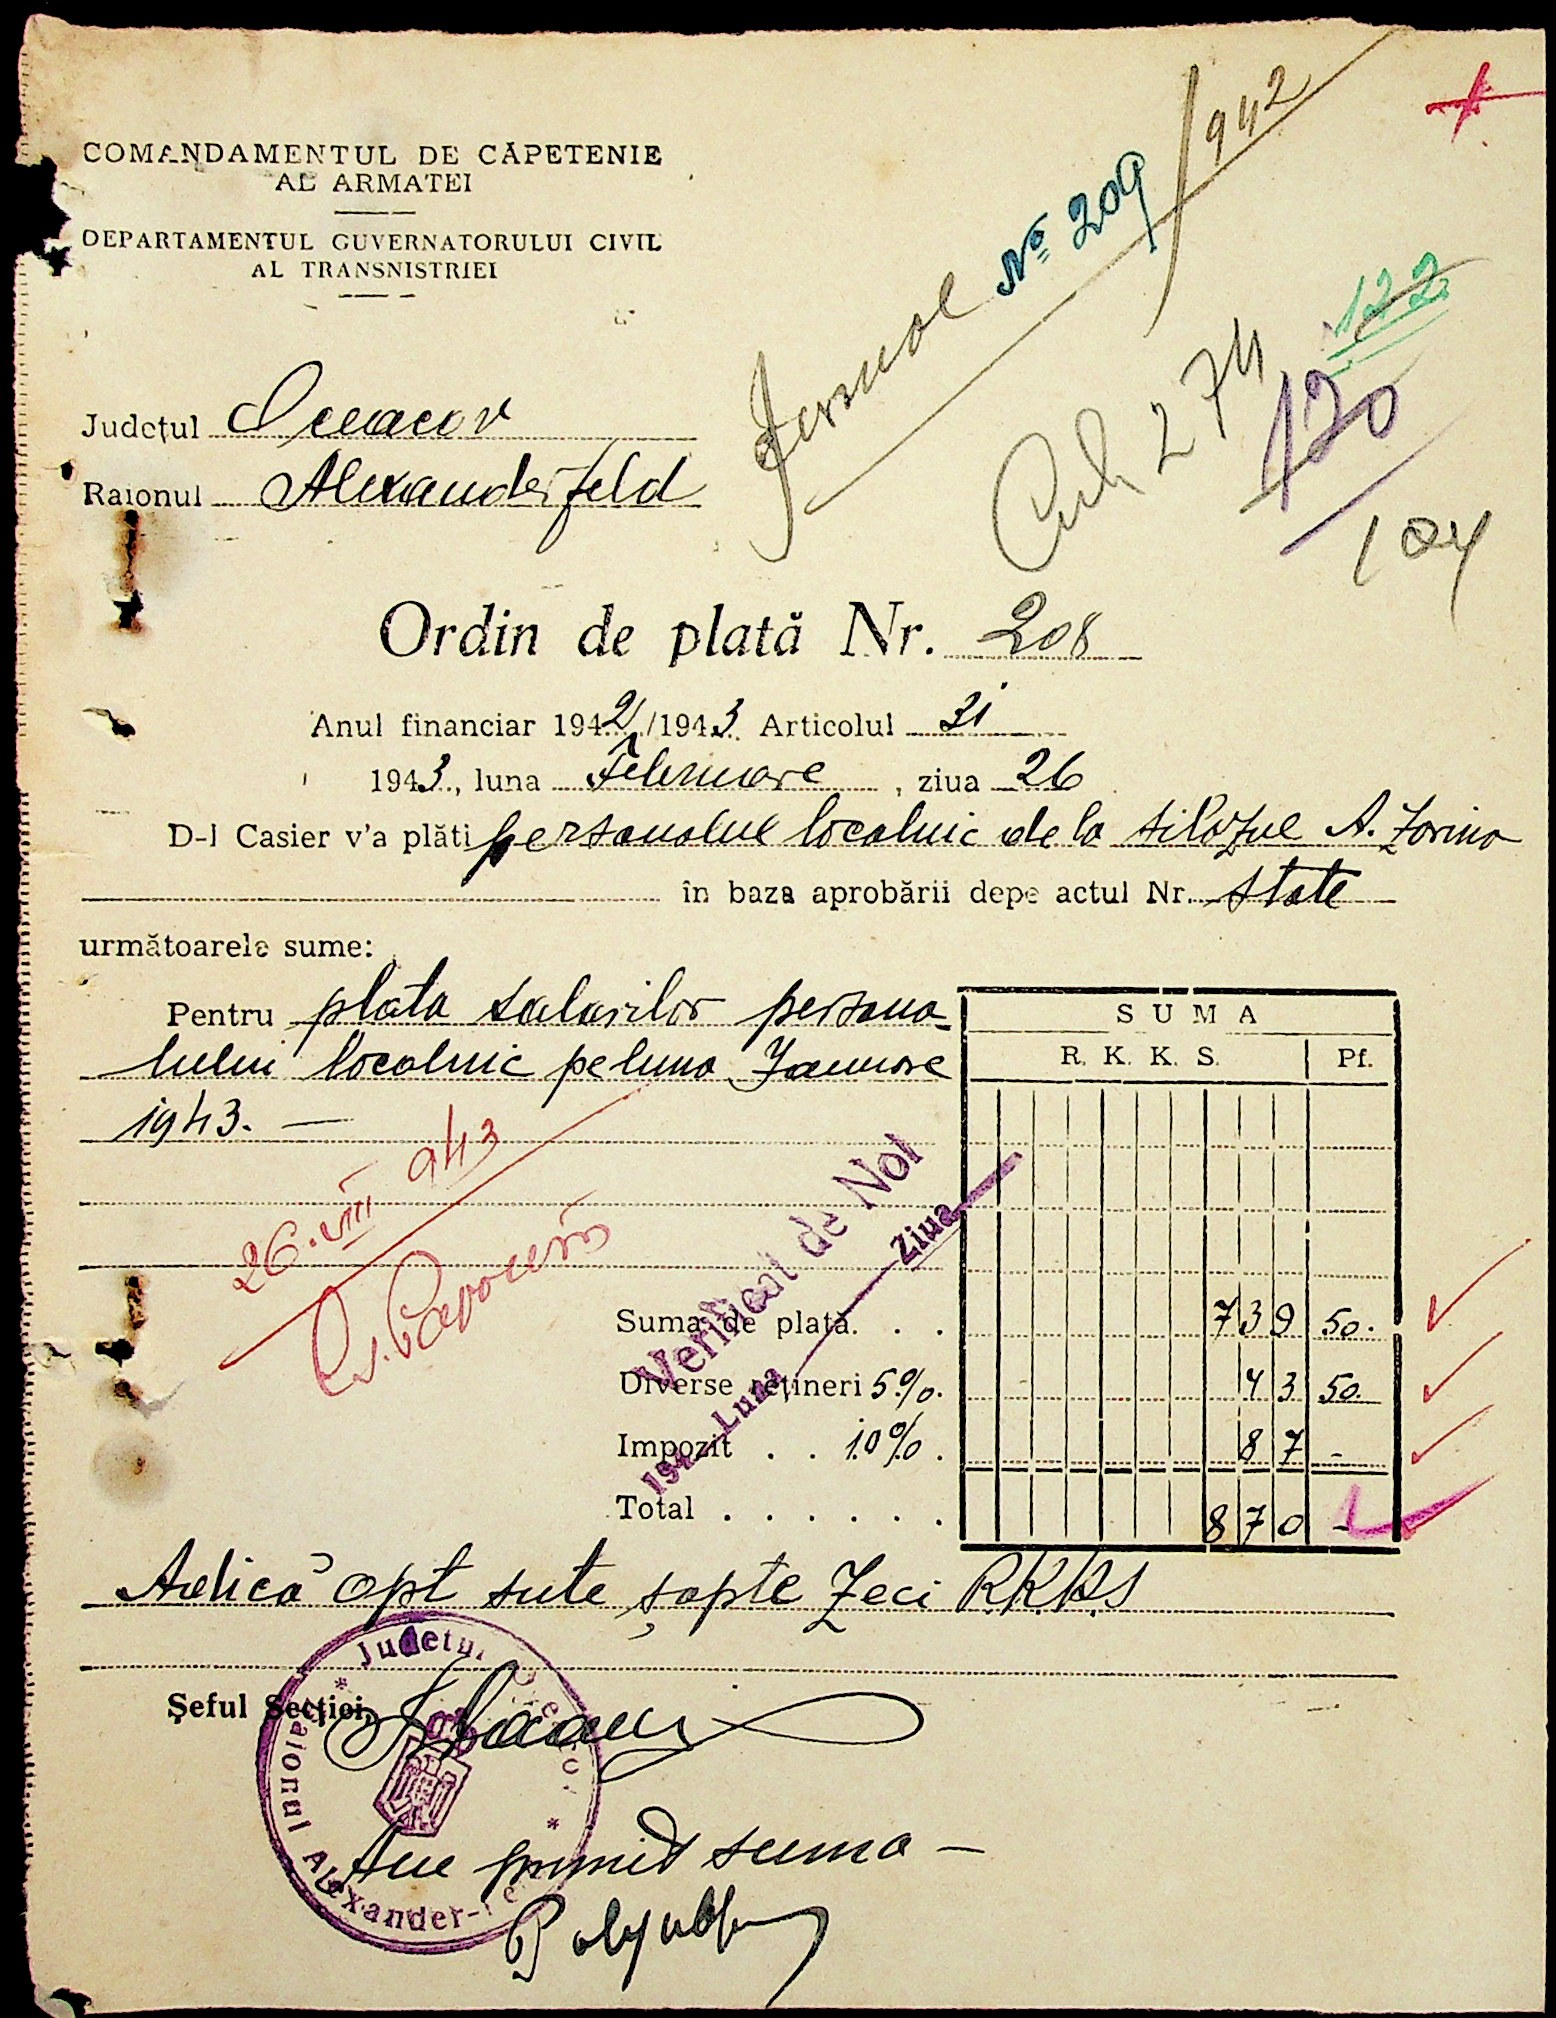 COMANDAMENTUL DE CAPETENIE
AL ARMATEI
DEPARTAMENTUL GUVERNATORULUI CIVIL
AL TRANSNISTRIEI
Jurnal № 209/942
122
274
120
104
Județul Oceacov
Raionul Alexanderfeld
Ordin de plată Nr. 208
Anul financiar 1942/1943 Articolul 31
1943, luna Februare, ziua 26
D-l Casier v'a plăti personalul localnic de la silozul A. Zorino
în baza aprobării depe actul Nr. State
următoarele sume:
Pentru plata salarilor persona-
lului localnic pe luna Januare
1943. —
SUMA
R. K. K. S. Pf.
26.VIII 943
Verificat de Noi
194 Luna — Ziua
Suma de plată. . . 739 50.
Diverse rețineri 5%. 43 50.
Impozit . . 10% . 87 -
Total . . . . . . . 870 -
Adică opt sute șapte zeci R.K.K.S
Șeful Secției,
Județul Oceacov * Raionul Alexander-Feld *
Am primit suma —